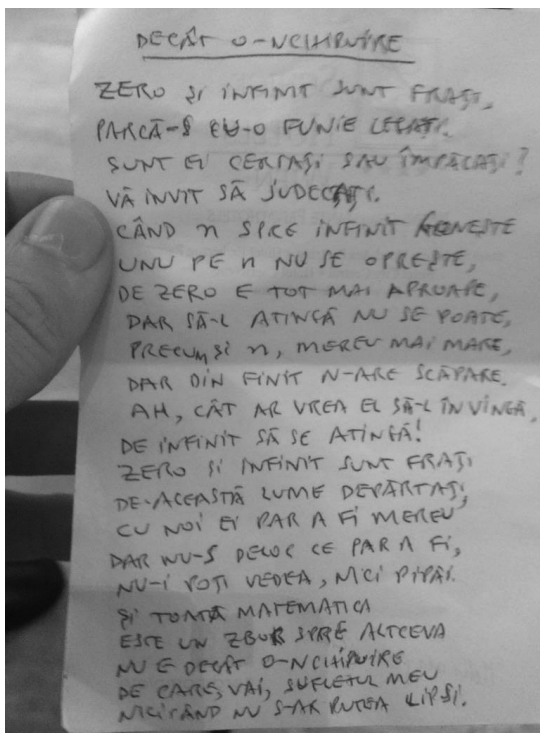 DECÂT O-NCHIPUIRE
ZERO ȘI INFINIT SUNT FRAȚI,
PARCĂ-S CU-O FUNIE LEGAȚI.
SUNT EI CERTAȚI SAU ÎMPĂCAȚI?
VĂ INVIT SĂ JUDECAȚI.
CÂND n SPRE INFINIT GONEȘTE
UNU PE n NU SE OPREȘTE,
DE ZERO E TOT MAI APROAPE,
DAR SĂ-L ATINGĂ NU SE POATE,
PRECUM ȘI n, MEREU MAI MARE,
DAR DIN FINIT N-ARE SCĂPARE.
AH, CÂT AR VREA EL SĂ-L ÎNVINGĂ,
DE INFINIT SĂ SE ATINGĂ!
ZERO ȘI INFINIT SUNT FRAȚI
DE-ACEASTĂ LUME DEPĂRTAȚI,
CU NOI EI PAR A FI MEREU
DAR NU-S DELOC CE PAR A FI,
NU-I POȚI VEDEA, NICI PIPĂI.
ȘI TOATĂ MATEMATICA
ESTE UN ZBOR SPRE ALTCEVA
NU E DECÂT O-NCHIPUIRE
DE CARE, VAI, SUFLETUL MEU
NICICÂND NU S-AR PUTEA LIPSI.